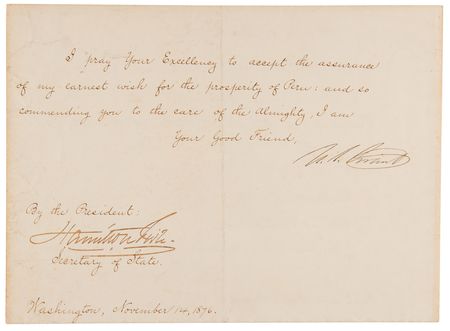 I pray Your Excellency to accept the assurance
of my earnest wish for the prosperity of Peru: and so
commending you to the care of the Almighty, I am
Your Good Friend,
U. S. Grant
By the President:
Hamilton Fish.
Secretary of State.
Washington, November 14, 1876.